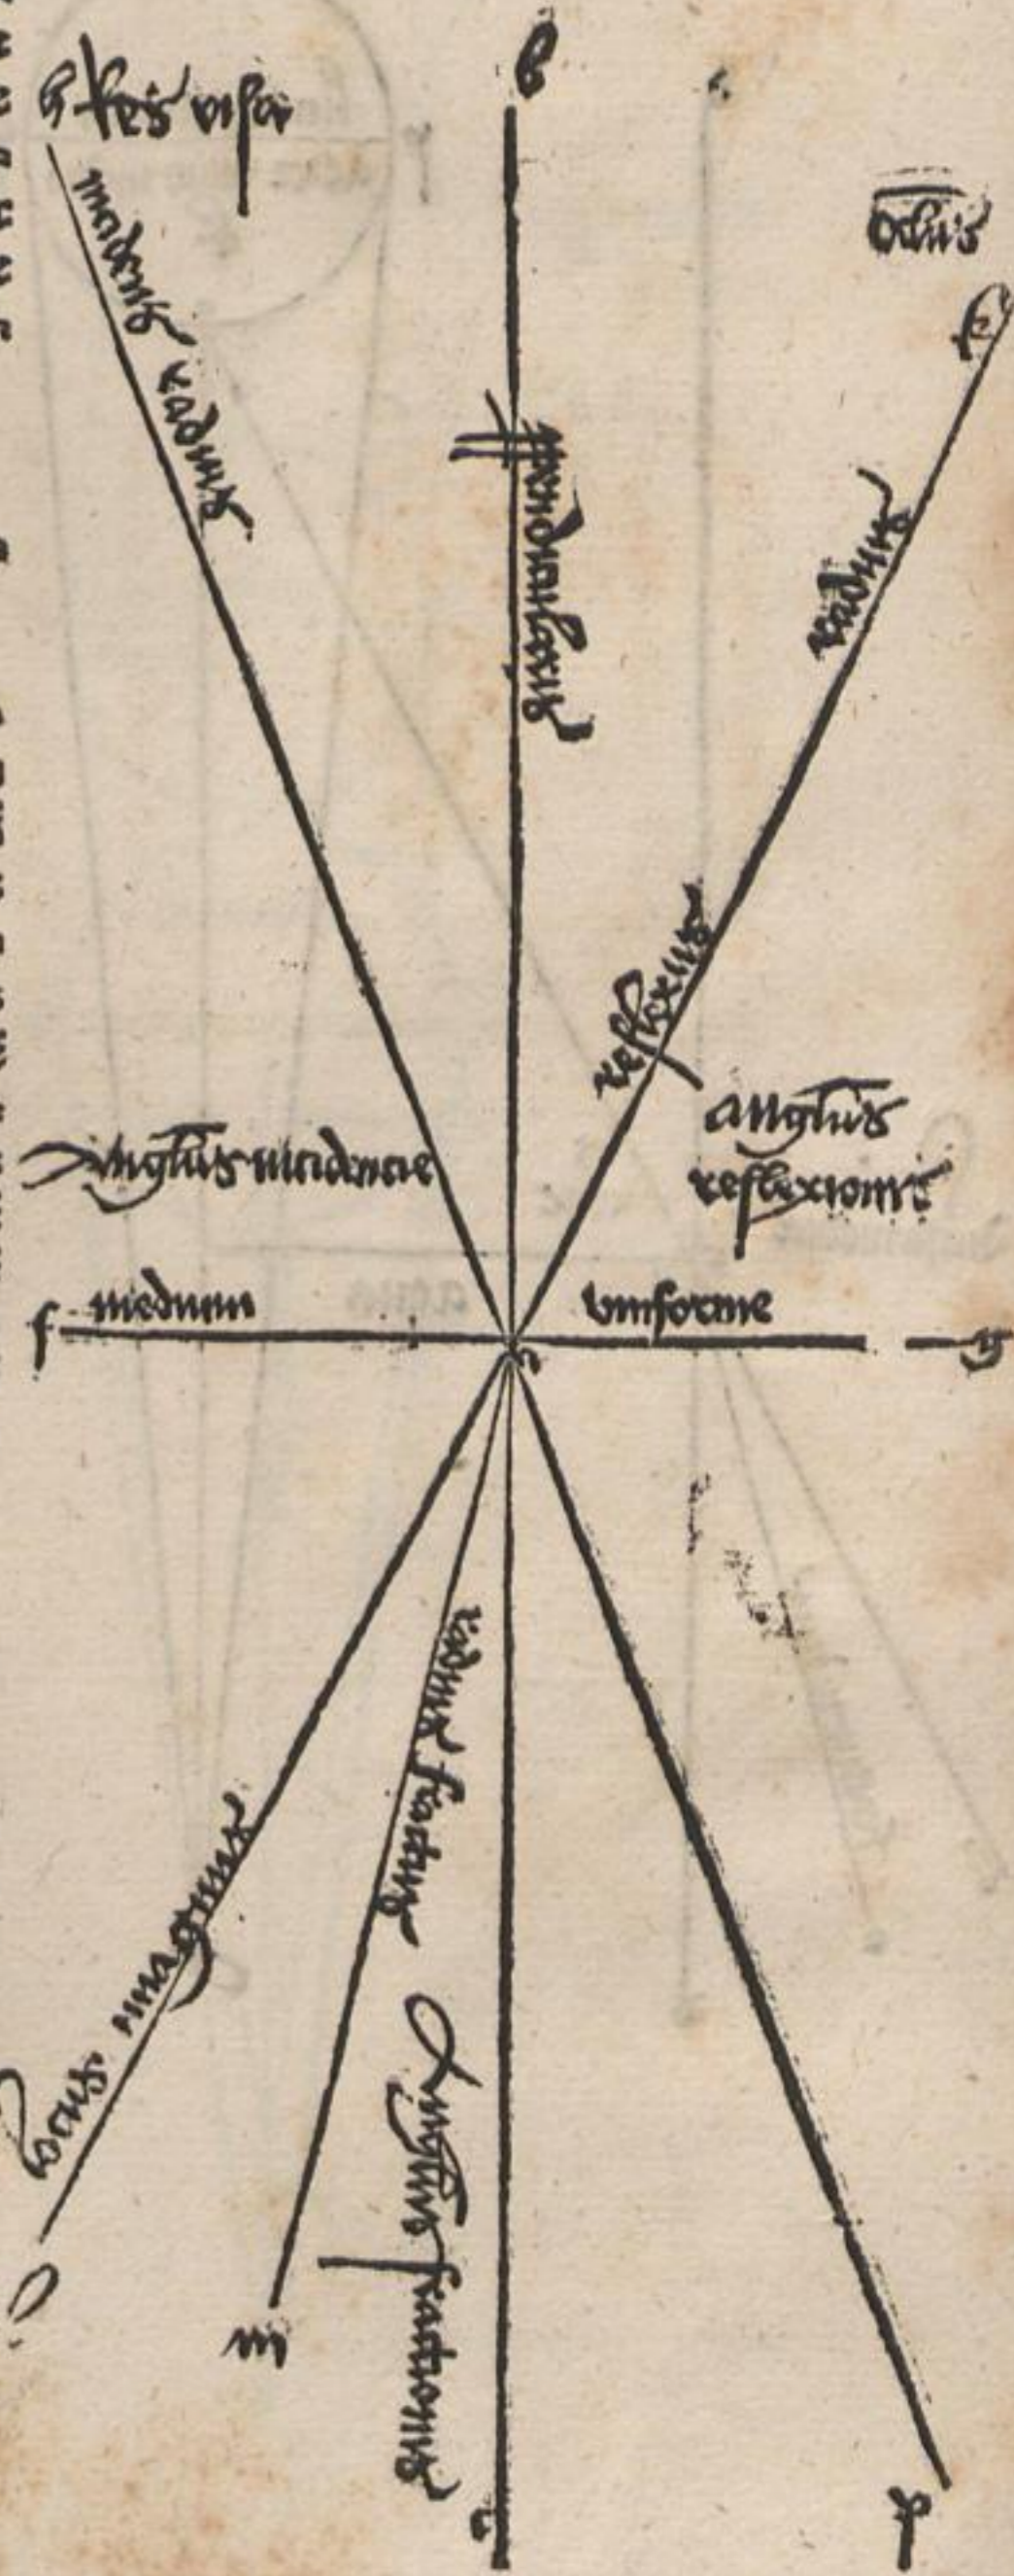 h Res visa
b
oclus
k
incidens radius
perpendicularis
radius
reflexus
Anglus incidencie
Anglus
reflexionis
f medium uniforme g
a
radius fractus
locus imaginis
Anglus fractionis
o
m
c
p